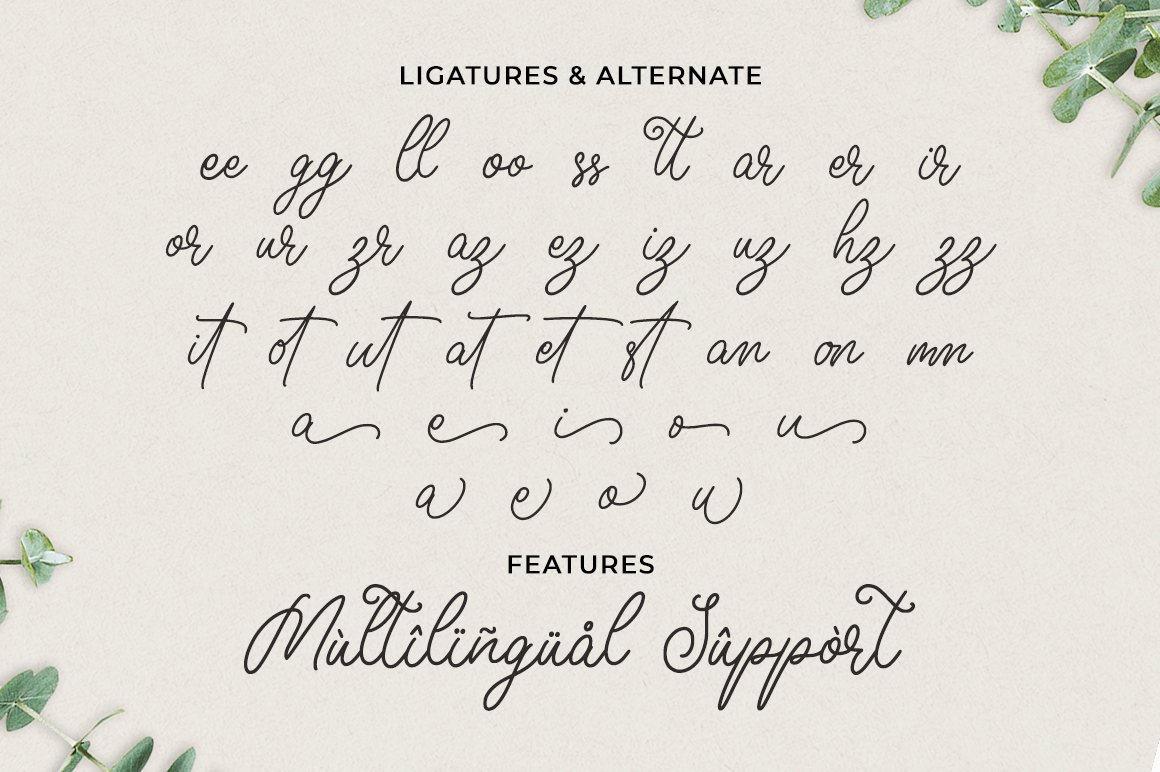 LIGATURES & ALTERNATE
ee gg ll oo ss tt ar er ir
or ur zr az ez iz uz hz zz
it ot ut at et st an on mn
a e i o u
a e o u
FEATURES
Mùltîlïñgüål Sûppòrt